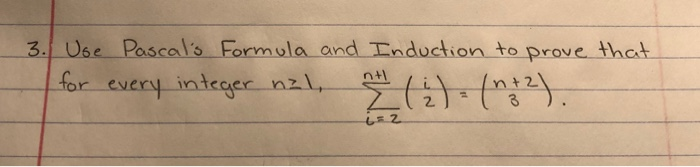 3. Use Pascal's Formula and Induction to prove that
for every integer n≥1, \sum_{i=2}^{n+1} \binom{i}{2} = \binom{n+2}{3}.